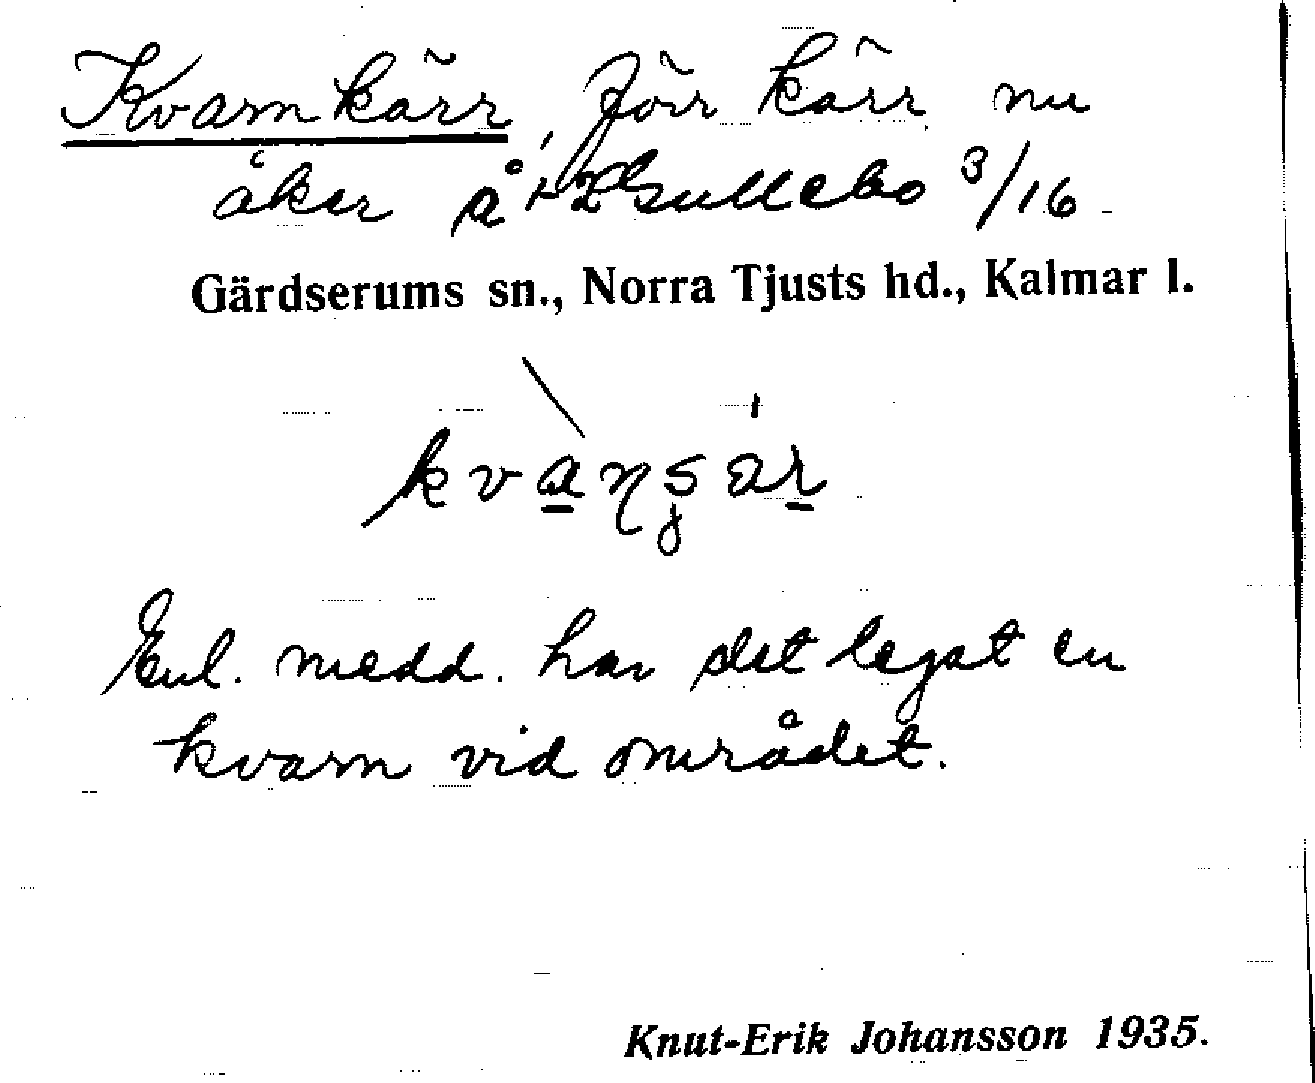 Kvarnkärr, förr kärr nu
åker å Gullebo 3/16
Gärdserums sn., Norra Tjusts hd., Kalmar l.
Enl. medd. har det legat en
kvarn vid området.
Knut-Erik Johansson 1935.